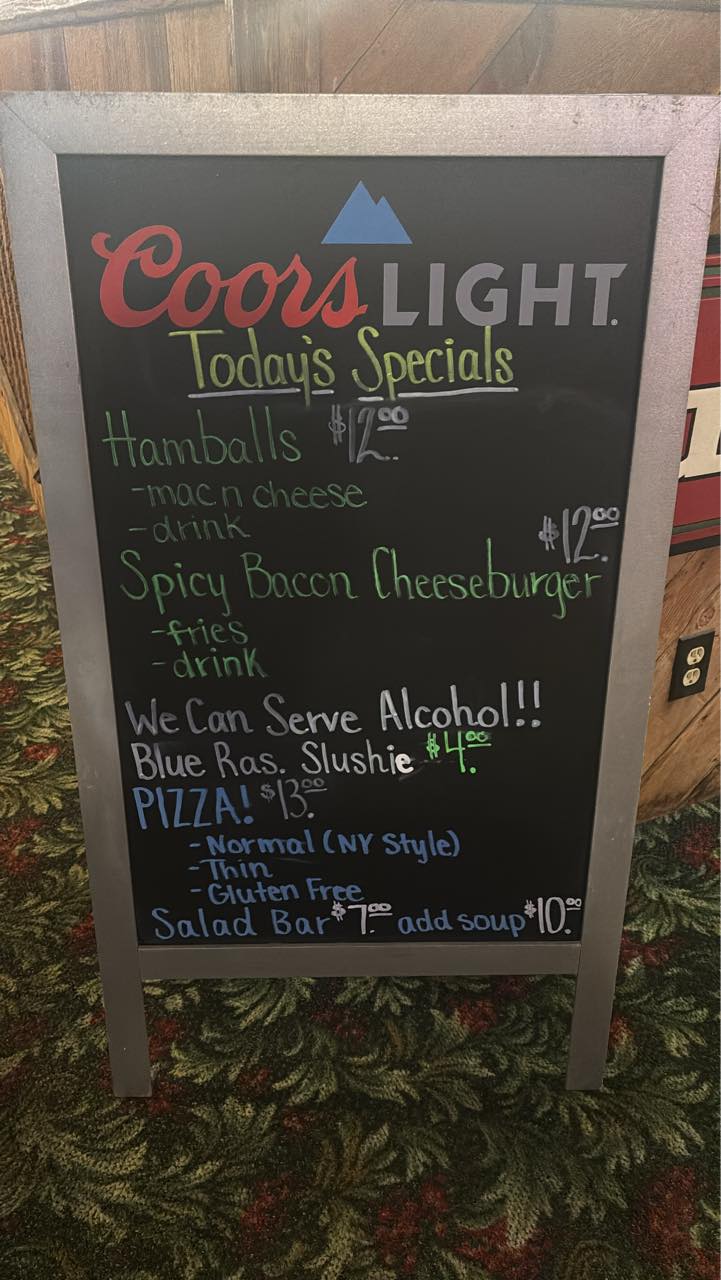 Coors LIGHT.
Today's Specials
Hamballs $12.00
-mac n cheese
-drink
$12.00
Spicy Bacon Cheeseburger
-fries
-drink
We Can Serve Alcohol!!
Blue Ras. Slushie $4.00
PIZZA! $13.00
-Normal (NY Style)
-Thin
-Gluten Free
Salad Bar $7.00 add soup $10.00